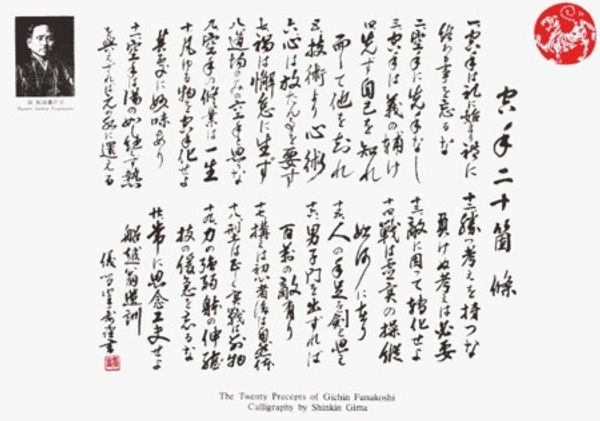 空手二十箇條
一空手は礼に始り禮に
終わる事を忘るな
二空手に先手なし
三空手は義の補け
四先づ自己を知れ
而して他を知れ
五技術より心術
六心は放たん事を要す
七禍は懈怠に生ず
八道場のみの空手と思ふな
九空手の修業は一生
十凡ゆる物を空手化せよ
其處に妙味あり
十一空手は湯の如し絶す熱
を與えざれば元の水に還える
十二勝つ考えを持つな
負けぬ考えは必要
十三敵に因って轉化せよ
十四戦は虚実の操縦
如何に在り
十五人の手足を劔と思え
十六男子門を出ずれば
百萬の敵有り
十七構えは初心者に後は自然体
十八型は正しく実戦は別物
十九力の強弱躰の伸縮
技の緩急を忘るな
廿常に思念工夫せよ
船越翁遺訓
The Twenty Precepts of Gichin Funakoshi
Calligraphy by Shinkin Gima